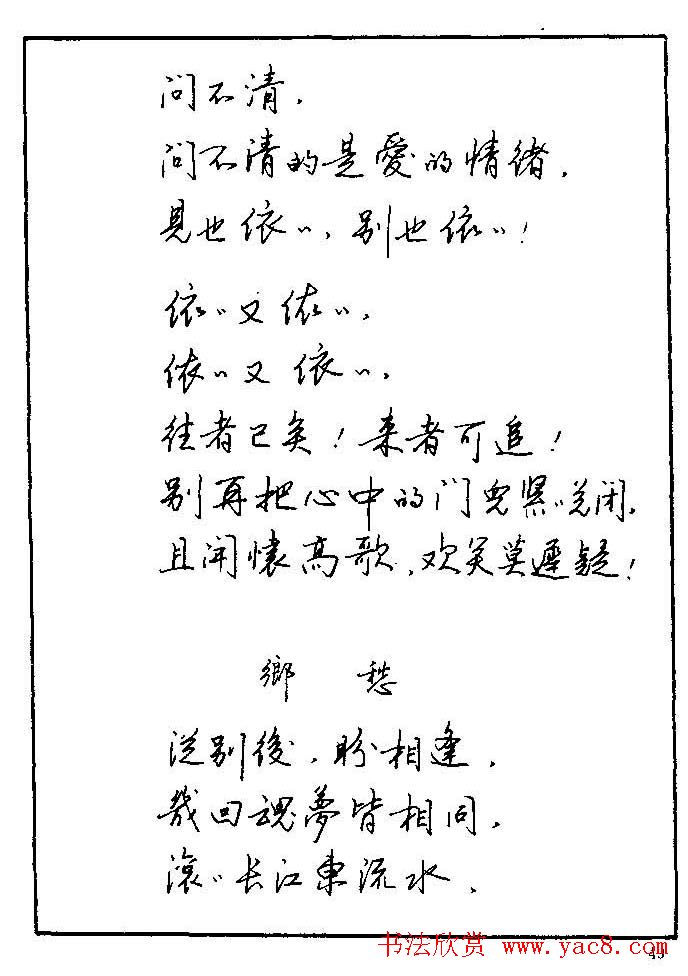 问不清，
问不清的是愛的情绪，
見也依〃，别也依〃！
依〃又依〃，
依〃又依〃，
往者已矣！来者可追！
别再把心中的门兒紧〃闭，
且開懷高歌、欢笑莫遲疑！
鄉愁
從别後，盼相逢，
幾回魂夢皆相同，
滾〃长江東流水，
书法欣赏 www.yac8.com